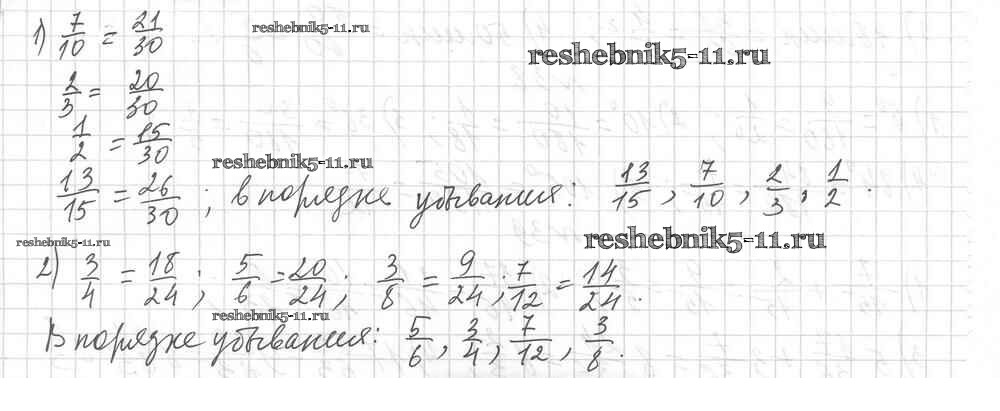 1) 7/10 = 21/30 reshebnik5-11.ru
reshebnik5-11.ru
2/3 = 20/30
1/2 = 15/30
reshebnik5-11.ru
13/15 = 26/30 ; в порядке убывания: 13/15, 7/10, 2/3, 1/2.
reshebnik5-11.ru reshebnik5-11.ru
2) 3/4 = 18/24; 5/6 = 20/24; 3/8 = 9/24; 7/12 = 14/24.
reshebnik5-11.ru
В порядке убывания: 5/6, 3/4, 7/12, 3/8.